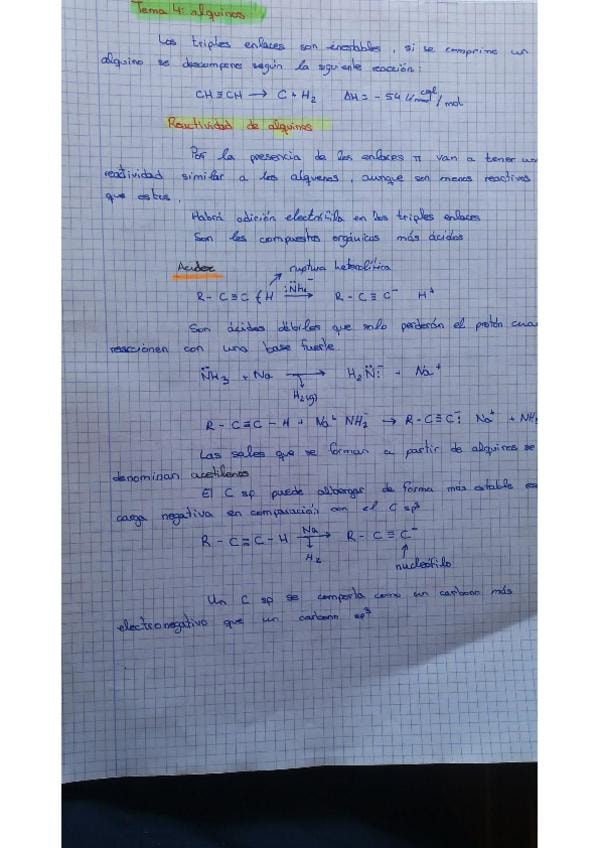 Tema 4: alquinos
Los triples enlaces son inestables, si se comprime un
alquino se descompone según la siguiente reacción:
CH≡CH → C + H₂ ΔH = - 54 /mol
Reactividad de alquinos
Por la presencia de los enlaces π van a tener un
reactividad similar a los alquenos, aunque son menos reactivos
que estos.
Habrá adición electrófila en los triples enlaces
Son los compuestos orgánicos más ácidos
Acidez ruptura heterolítica
R - C≡C { H :NH₂⁻ → R - C≡C⁻ H⁺
Son ácidos débiles que solo perderán el protón cua
reaccionen con una base fuerte.
NH₃ + Na → H₂N:⁻ Na⁺
H₂(g)
R - C≡C - H + Na⁺ NH₂⁻ → R - C≡C:⁻ Na⁺ + NH
Las sales que se forman a partir de alquinos se
denominan acetilenos
El C sp puede albergar de forma más estable es
carga negativa en comparación con el C sp³
R - C≡C - H Na → R - C≡C⁻
H₂
nucleófilo
Un C sp se comporta como un carbono más
electronegativo que un carbono sp³